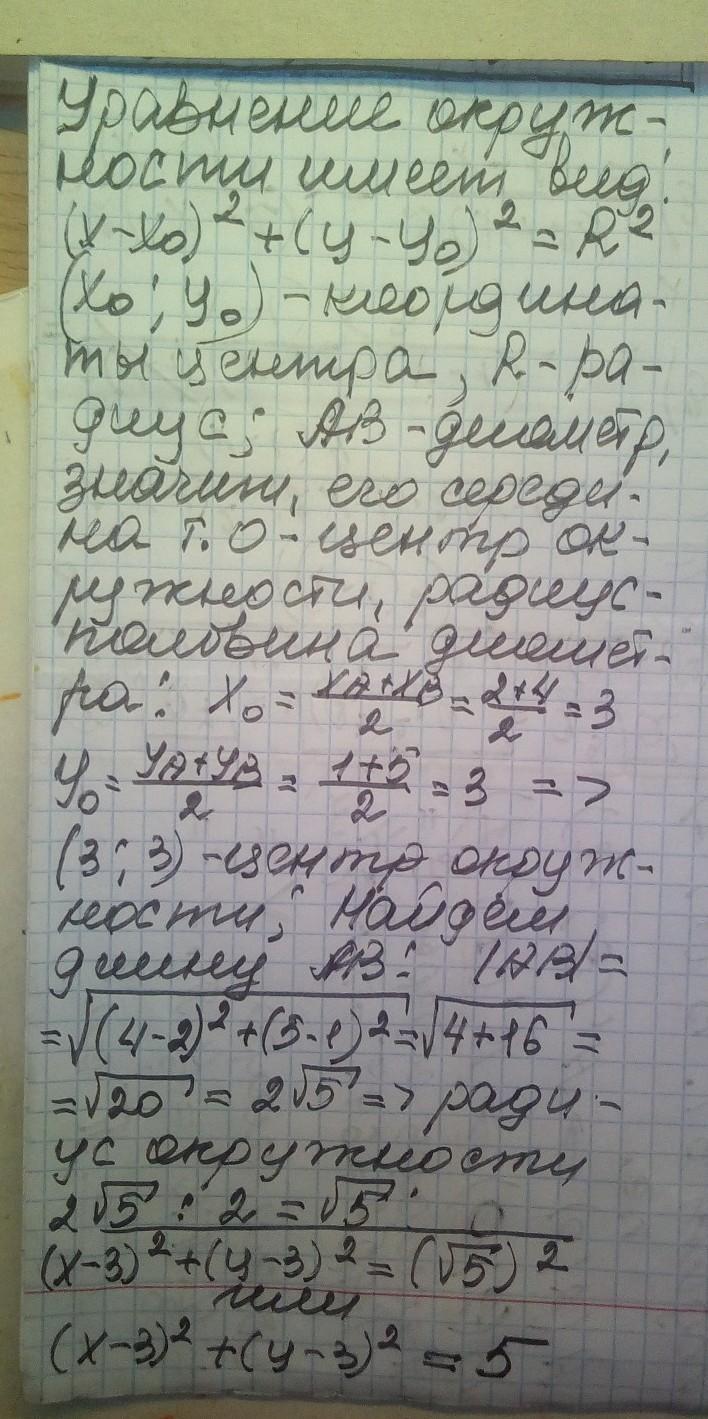 Уравнение окруж-
ности имеет вид:
(x-x₀)² + (y-y₀)² = R²
(x₀; y₀) - координа-
ты центра, R - ра-
диус; AB - диаметр,
значит, его середи-
на т. O - центр ок-
ружности, радиус-
половина диамет-
ра: x₀ = (xA+xB)/2 = (2+4)/2 = 3
y₀ = (yA+yB)/2 = (1+5)/2 = 3 =>
(3; 3) - центр окруж-
ности; Найдём
длину AB: |AB| =
= √((4-2)² + (5-1)²) = √(4+16) =
= √20 = 2√5 => ради-
ус окружности
2√5 : 2 = √5
(x-3)² + (y-3)² = (√5)²
или
(x-3)² + (y-3)² = 5